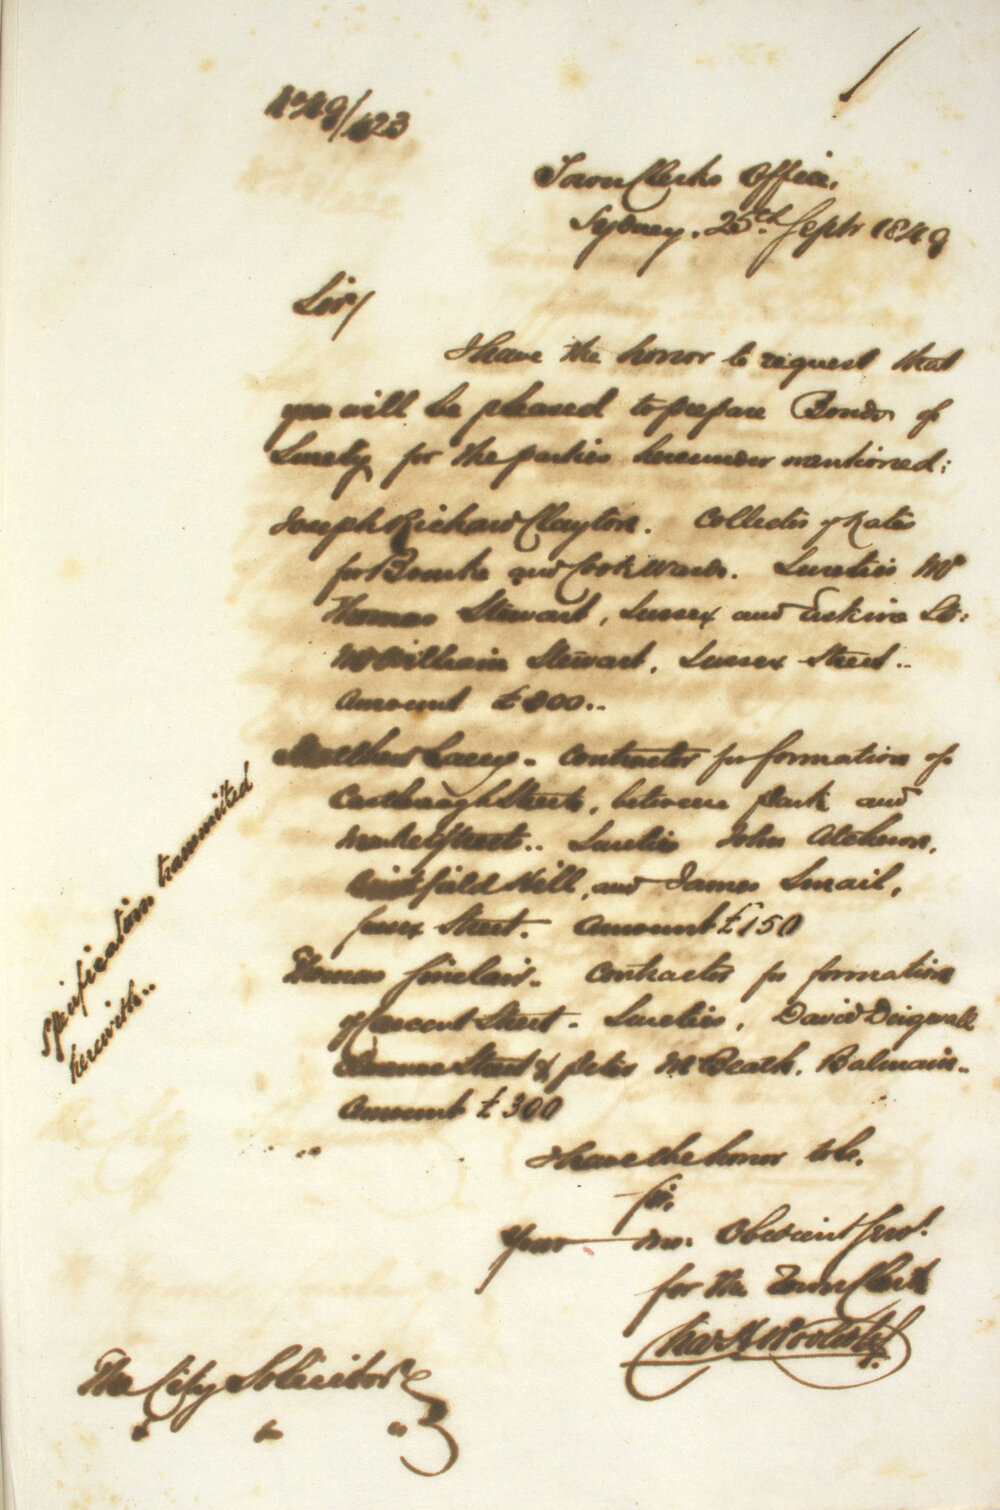 No 49/423
Town Clerks Office,
Sydney. 25th Septr 1849
Sir/
I have the honor to request that
you will be pleased to prepare Bonds of
Surety for the parties hereunder mentioned:
Joseph Richard Clayton. Collector of Rates
for Bourke and Cook Wards. Sureties Mr
Thomas Stewart, Sussex and Erskine St:
Mr William Stewart, Sussex Street..
Amount £800..
Matthew Lacey. Contractor for formation of
Castlereagh Street, between Park and
Market Streets.. Sureties John Atchison,
field Hill, and James Smail,
Sussex Street. Amount £150
Thomas Sinclair. Contractor for formation
of Crescent Street. Sureties, David Dingwall
Clarence Street & Peter McBeath. Balmain..
Amount £300
Specification transmitted
herewith..
I have the honor to be,
Sir,
Your mo: Obedient Servt.
for the Town Clerk
Chas H Woolcott
The City Solicitor
" " "